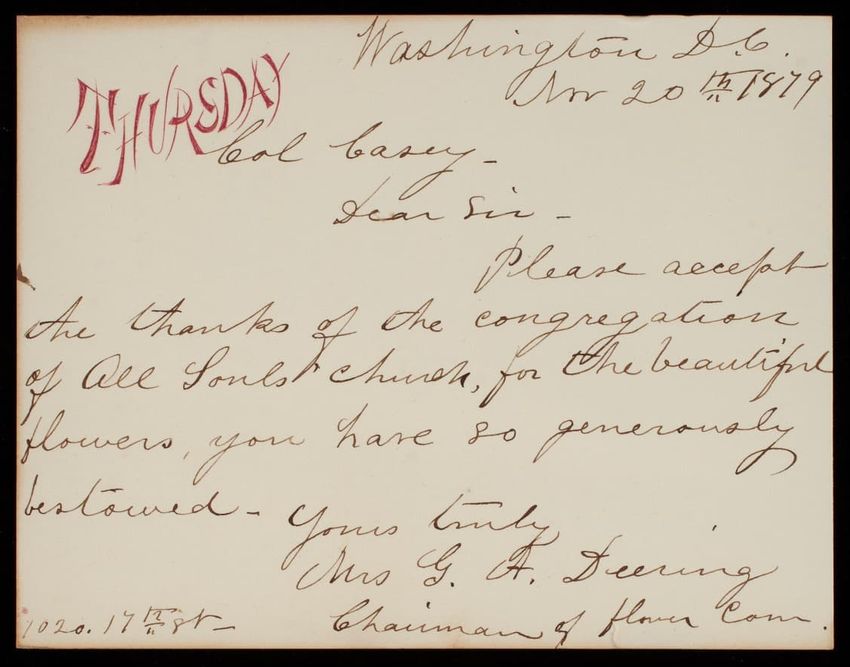 Washington D.C.
Nov 20th 1879
THURSDAY
Col Casey -
Dear Sir -
Please accept
the thanks of the congregation
of All Souls' church, for the beautiful
flowers, you have so generously
bestowed -
Yours truly
Mrs G. A. Deering
Chairman of flower Com.
1020. 17th St -